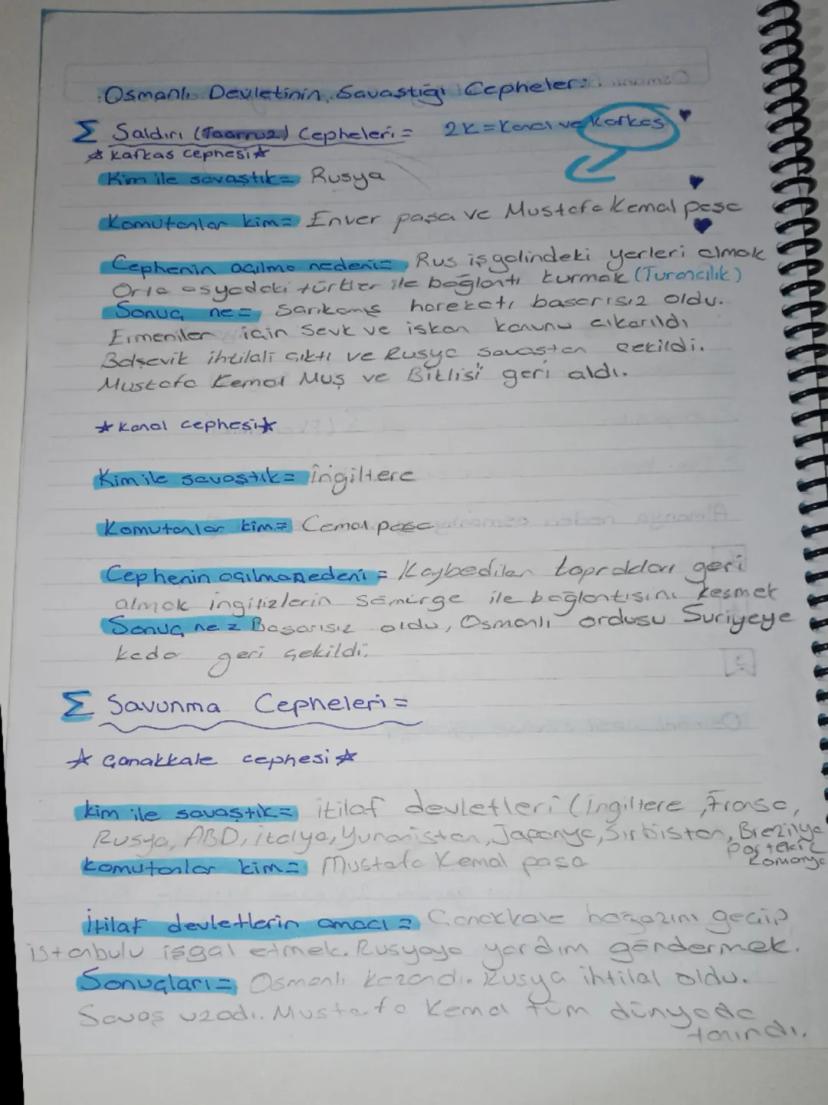 Osmanlı Devletinin Savaştığı Cepheler:
Σ Saldırı (Taarruz) Cepheleri = 2K = Kanal ve Kafkas
☆ Kafkas Cephesi ☆
Kim ile savaştık = Rusya
Komutanlar kim = Enver paşa ve Mustafa Kemal paşa
Cephenin açılma nedeni = Rus işgalindeki yerleri almak
Orta asyadaki türkler ile bağlantı kurmak (Turancılık)
Sonuç ne = Sarıkamış harekatı başarısız oldu.
Ermeniler için Sevk ve iskan kanunu çıkarıldı
Bolşevik ihtilali çıktı ve Rusya savaştan çekildi.
Mustafa Kemal Muş ve Bitlisi geri aldı.
☆ Kanal cephesi ☆
Kim ile savaştık = İngiltere
Komutanlar kim = Cemal paşa
Cephenin açılma nedeni = Kaybedilen toprakları geri
almak ingilizlerin sömürge ile bağlantısını kesmek
Sonuç ne = Başarısız oldu, Osmanlı ordusu Suriyeye
kada geri çekildi.
Σ Savunma Cepheleri =
☆ Çanakkale cephesi ☆
Kim ile savaştık = itilaf devletleri (İngiltere, Fransa,
Rusya, ABD, italya, Yunanistan, Japonya, Sırbistan, Brezilya
Portekiz
Romanya
Komutanlar kim = Mustafa Kemal paşa
İtilaf devletlerin amacı = Çanakkale boğazını geçip
istanbulu işgal etmek. Rusyaya yardım göndermek.
Sonuçları = Osmanlı kazandı. Rusya ihtilal oldu.
Savaş uzadı. Mustafa Kemal tüm dünyada
tanındı.